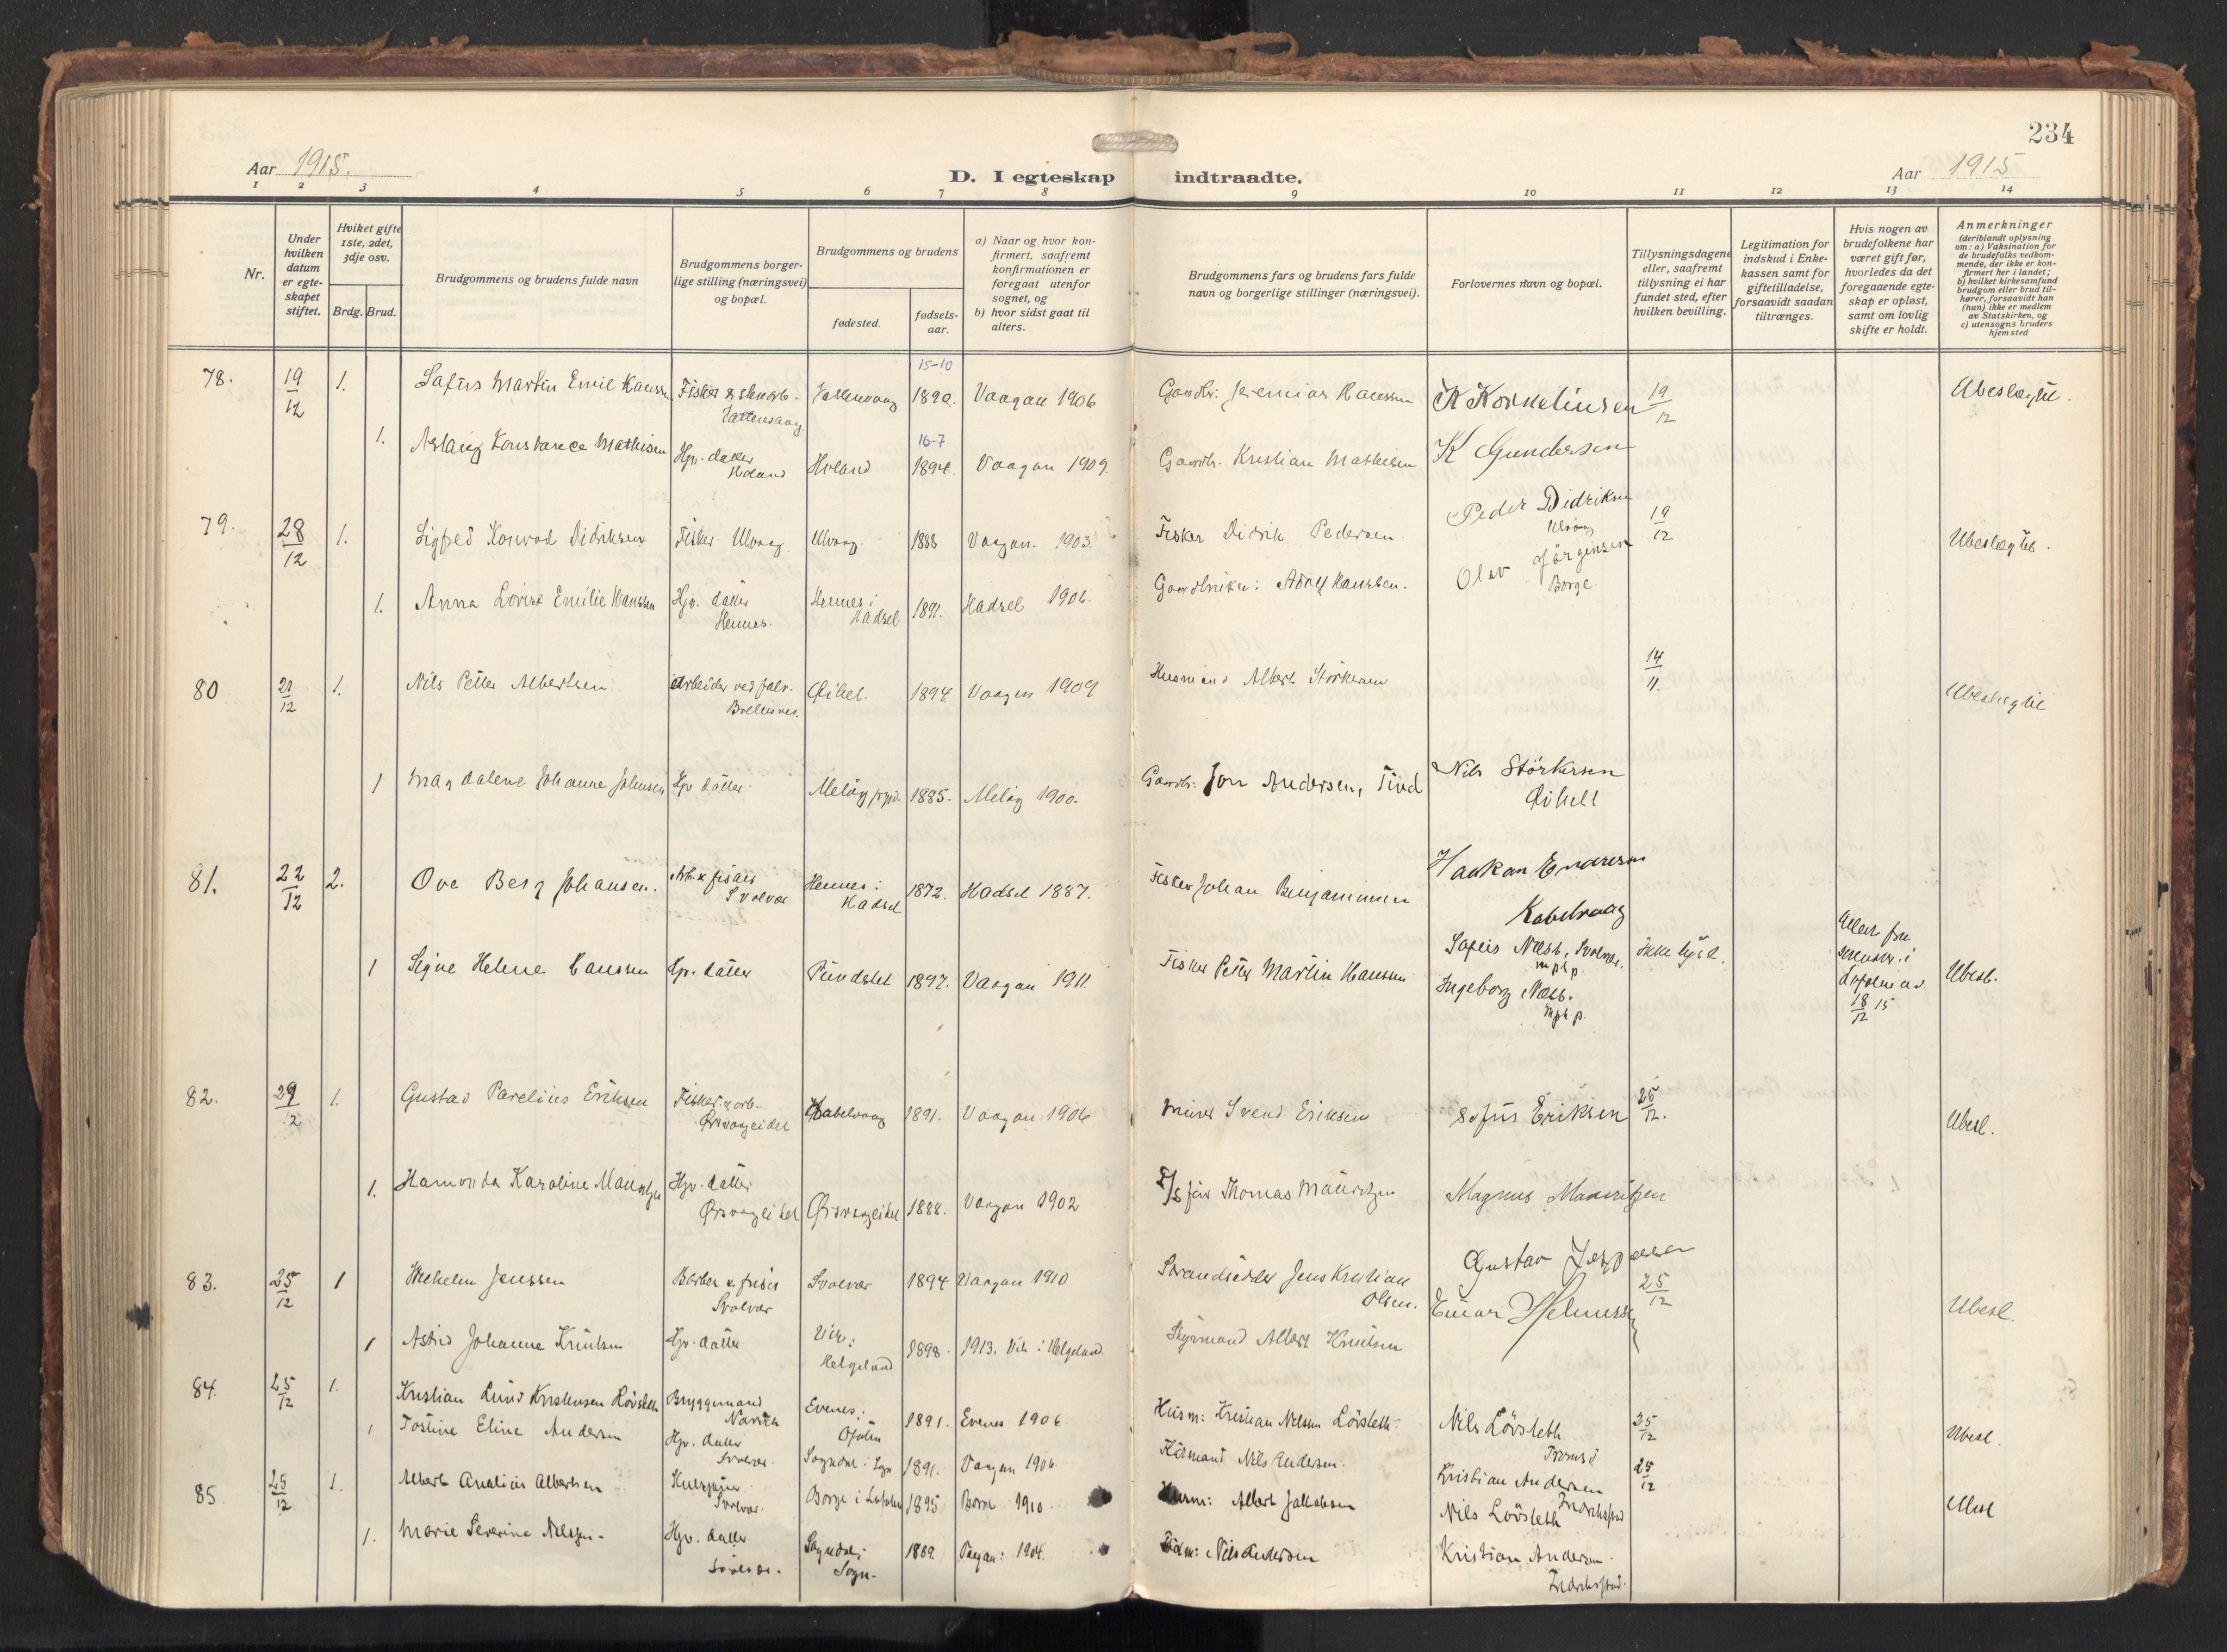 234
Aar 1915.
D. I egteskap indtraadte.
Aar 1915
1 2 3 4 5 6 7 8 9 10 11 12 13 14
Nr.
Under hvilken datum er egteskapet stiftet.
Hviket gifte 1ste, 2det, 3dje osv.
Brdg. Brud.
Brudgommens og brudens fulde navn
Brudgommens borgerlige stilling (næringsvei) og bopæl.
Brudgommens og brudens
fødested.
fødselsaar.
a) Naar og hvor konfirmert, saafremt konfirmationen er foregaat utenfor sognet, og
b) hvor sidst gaat til alters.
Brudgommens fars og brudens fars fulde navn og borgerlige stillinger (næringsvei).
Forlovernes navn og bopæl.
Tillysningsdagene eller, saafremt tillysning ei har fundet sted, efter hvilken bevilling.
Legitimation for indskud i Enkekassen samt for giftetilladelse, forsaavidt saadan tiltrænges.
Hvis nogen av brudefolkene har været gift før, hvorledes da det foregaaende egteskap er opløst, samt om lovlig skifte er holdt.
Anmerkninger
(deriblandt oplysning om: a) Vaksination for de brudefolks vedkommende, der ikke er konfirmert her i landet; b) hvilket kirkesamfund brudgom eller brud tilhører, forsaavidt han (hun) ikke er medlem av Statskirken, og c) utensogns bruders hjemsted
15-10
78. 19/12 1. Martin Emil Fisker 1890. Vaagan 1906 Gaardbr: Jeremias Hanssen K Kornelinsen 19/12 Ubeslægtet.
16-7
1. Aslaug Konstance Mathisen Hjv. datter Holand 1894. Vaagan 1909. Gaardbr. Kristian Mathisen K Gundersen
79. 28/12 1. Sigfred Konrad Didriksen Fisker Ulvaag Ulvaag 1888 Vaagan. 1903. Fisker Didrik Pedersen. Peder Didriksen Ulvaag 19/12 Ubeslægtet.
1. Anna Lovise Emilie Hanssen Hjv. datter Hennes. Hennes i Hadsel 1891. Hadsel 1906. Gaardbruker: Adolf Hanssen. Olav Jörgensen Borge.
80 21/12 1. Nils Petter Albertsen Arbeider ved fabr. 1894 Vaagan 1909 Husmand Albert Störkersen 14/11. Ubeslægtet
1 Magdalene Johanne Johnsen Hjv datter. Meløy 1885. Meløy 1900. Gaardbr: Jon Andersen, Nils Störkersen
81. 22/12 2. Ove Berg Johansen. Arb. & fisker Svolvær Hennes i Hadsel 1872. Hadsel 1887. Fisker Johan Benjaminsen Haakon Kabelvaag
1 Signe Helene Hanssen Hjv. datter 1897. Vaagan 1911. Fisker Peter Martin Hanssen Næss, Svolvær. m.p.p. Ikke lyst. Ubesl.
Ingeborg Næss. m.p.p.
18/12 15
82. 29/12 1. Gustav Parelius Eriksen Fisker & arb. Ørsvaageidet Kabelvaag 1891. Vaagan 1906 Svend Eriksen Sofus Eriksen 25/12. Ubesl.
1. Karoline Hjv. datter Ørsvaageidet Ørsvaageidet 1888. Vaagan 1902 Thomas Mauritzen Magnus Mauritzen
83. 25/12 1 Wilhelm Jenssen Barber & frisør Svolvær Svolvær 1894 Vaagan 1910 Strandsidder Jens Kristian Olsen. Gustav 25/12 Ubesl.
1 Astrid Johanne Knutsen Hjv. datter Vik i Helgeland 1898 1913. Vik i Helgeland. Albert Knutsen Einar
84. 25/12 1. Kristian Lund Kristensen Bryggemand Narvik Evenes: Ofoten 1891. Evenes 1906 Husm: Kristian Nelsen Lövsleth Nils Lövsleth Tromsö 25/12 Ubesl.
1 Eline Andersen Hjv. datter Svolvær. Sogndal i Sogn 1891. Vaagan 1906. Nils Andersen. Kristian Andersen Fredrikstad 25/12
85 25/12 1. Albert Albertsen Svolvær. Borge i Lofoten 1895 Borge 1910. Husm: Albert Jakobsen Nils Lövsleth Ubesl
1. Marie Severine Nilssen. Hjv. datter Svolvær. Sogndal i Sogn. 1889 Vaagan: 1904. Nils Andersen Kristian Andersen. Fredrikstad.